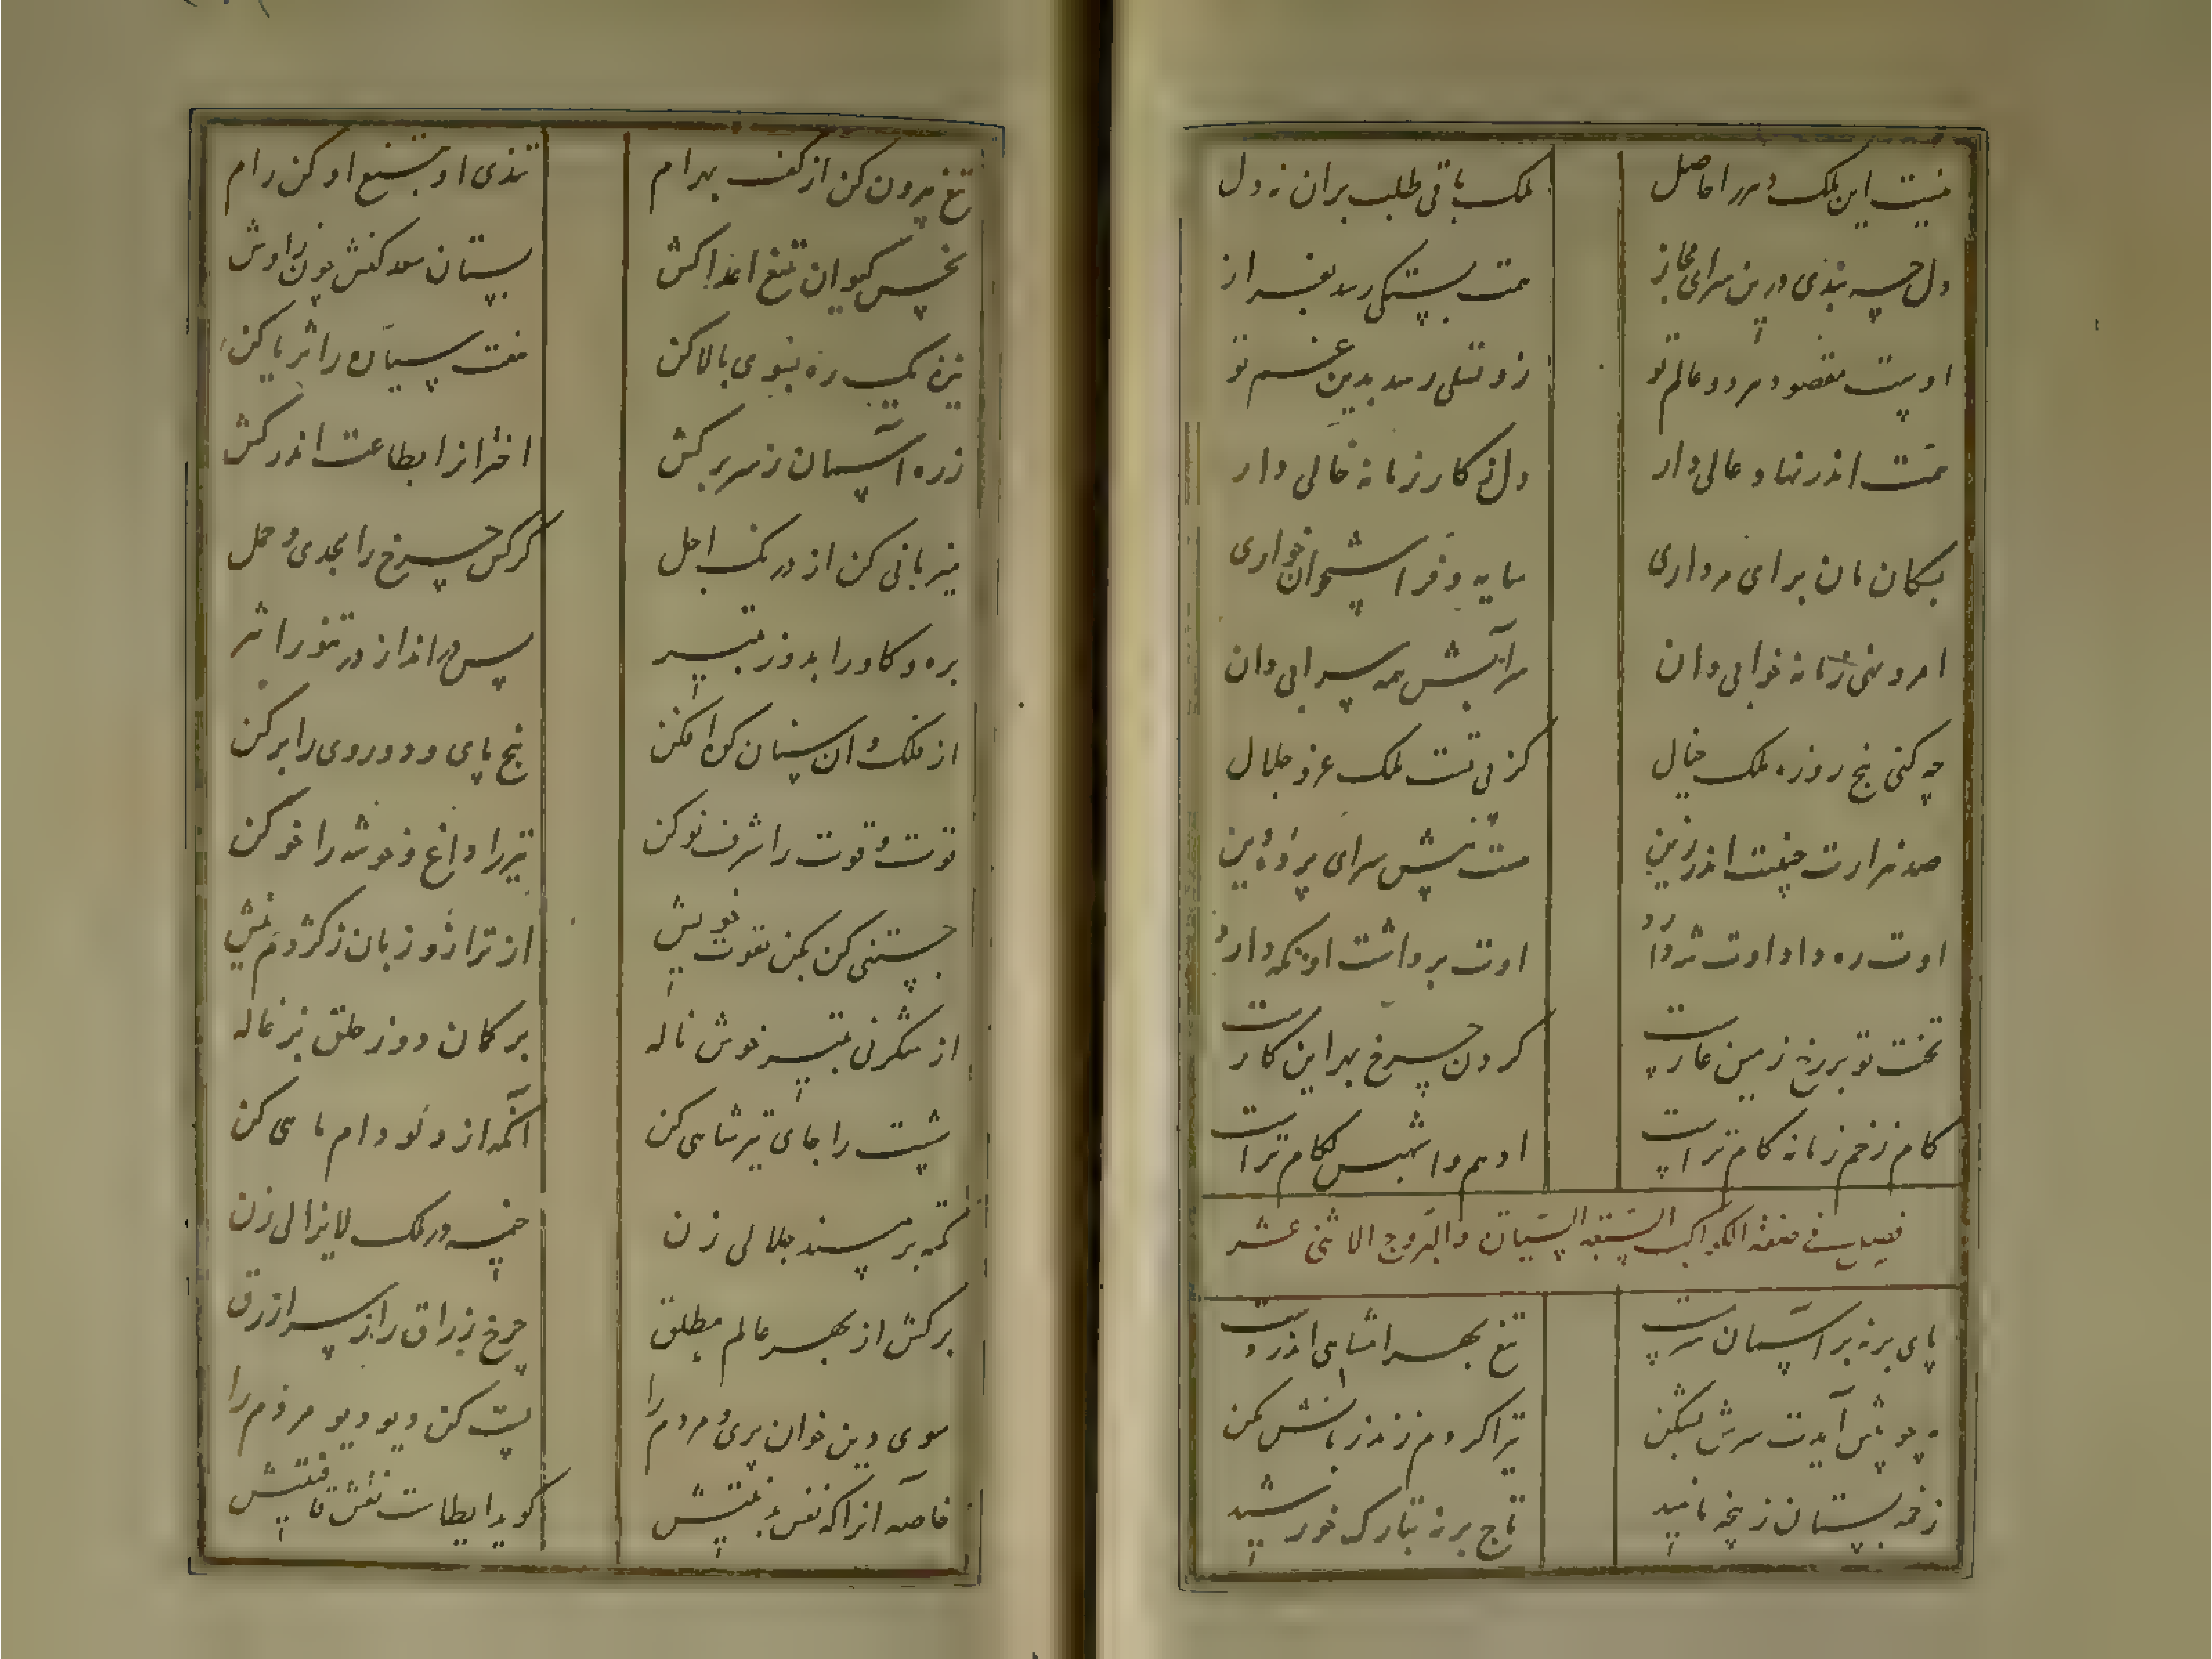 نیست این ملک دهر را حاصل ملک باقی طلب بران نه دل
دل چه بندی درین سرای مجاز همت پست کی رسد بفراز
اوست مقصود هر دو عالم تو زو تسلی رسد بدین غم تو
همت اندر نهاد عالی دار دل ز کار زمانه خالی دار
بسکان مان برای مرداری سایه و فر استخوان خواری
امر و نهی زمانه خوابی دان مر آبش همه سرابی دان
چه کنی پنج روزه ملک خیال کز پی تست ملک عز و جلال
صد هزارت جنیبت اندر زین هست پیش سرای پرده دین
اوت ره داد اوت شد ره دار اوت برداشت او نکه دارد
تخت تو بر رخ زمین عارست کردن چرخ بهر این کارست
کام زخم زمانه کام تراست ادهم و اشهبش لکام تراست
فصل فی صفة الکواکب السبعة السیارة والبروج الاثنی عشر
پای بر نه بر آسمان سرت تیغ بهرامشاهی اندر
مه چو پیش آیدت سرش بشکن تیر اکر دم زند زبانش بکن
زخمه بستان ز پنجه ناهید تاج بر نه بتارک خورشید
تیغ بیرون کن از کف بهرام تندی او بتیغ او کن رام
نحس کیوان بتیغ اعدا کش بستان سعد کنش چون زاوش
زین یک ره بسوی بالا کن هفت سیاره را ثریا کن
زره آسمان ز سر برکش اختران را بطاعت اندرکش
میزبانی کن از در یک اجل کرکس چرخ را بجدی و حمل
بره و کاو را بدوز بتیر پس درانداز در تنور اثیر
از فلک وان سنان کوه افکن پنج پای و دوروی را برکن
قوت و قوت را شرف نو کن تیر را داغ و خوشه را خو کن
جستنی کن بکن بقوت خویش از ترازو زبان ز کژدم نیش
از شکرفی بتیر خوش ناله بر کمان دوز حلق بزغاله
شست را جای تیر شاهی کن آنکه از دلو دام ماهی کن
تکیه بر مسند جلالی زن خیمه در ملک لایزالی زن
برکش از بهر عالم مطلق چرخ زراق را ز سر ازرق
سوی دین خوان پری و مردم را پست کن دیو و دیو مردم را
خاصه آنرا که نفس کوید ابطات نفس